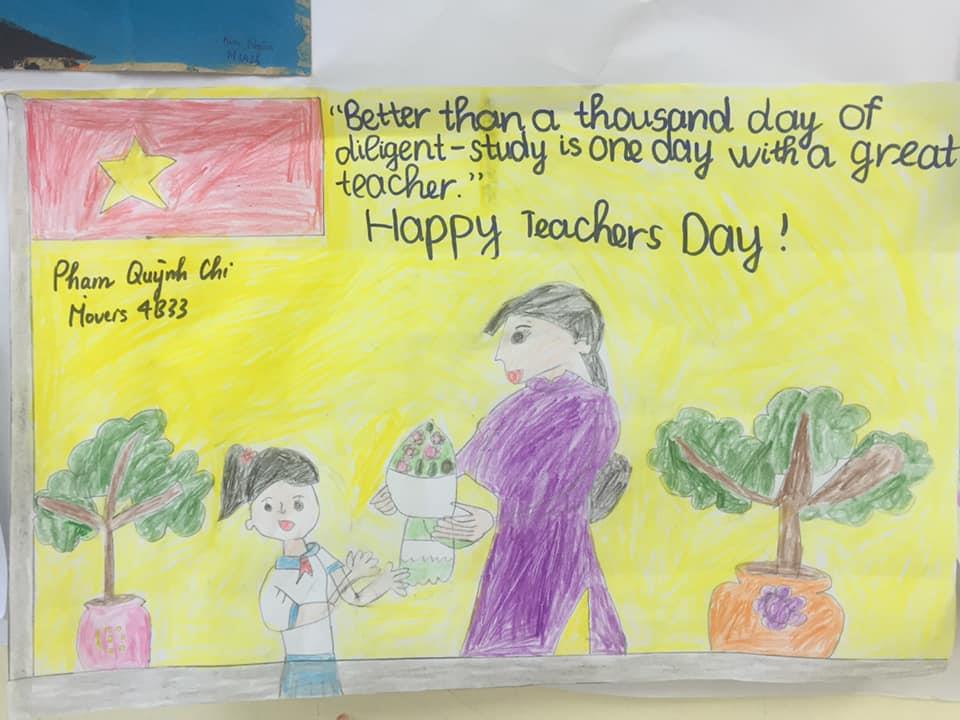 "Better than a thousand day of
diligent-study is one day with a great
teacher."
Happy Teachers Day!
Phạm Quỳnh Chi
Movers 4B33